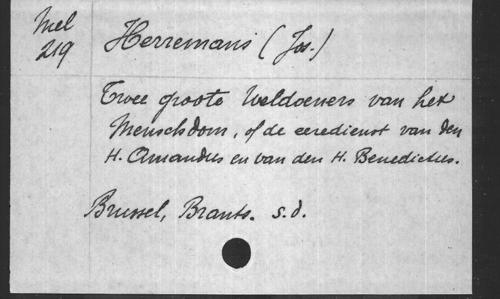 Mel
219
Herremans (Jos.)
Twee groote Weldoeners van het
Menschdom, of de eeredienst van den
H. Amandus en van den H. Benedictus.
Brussel, Brants. s.d.